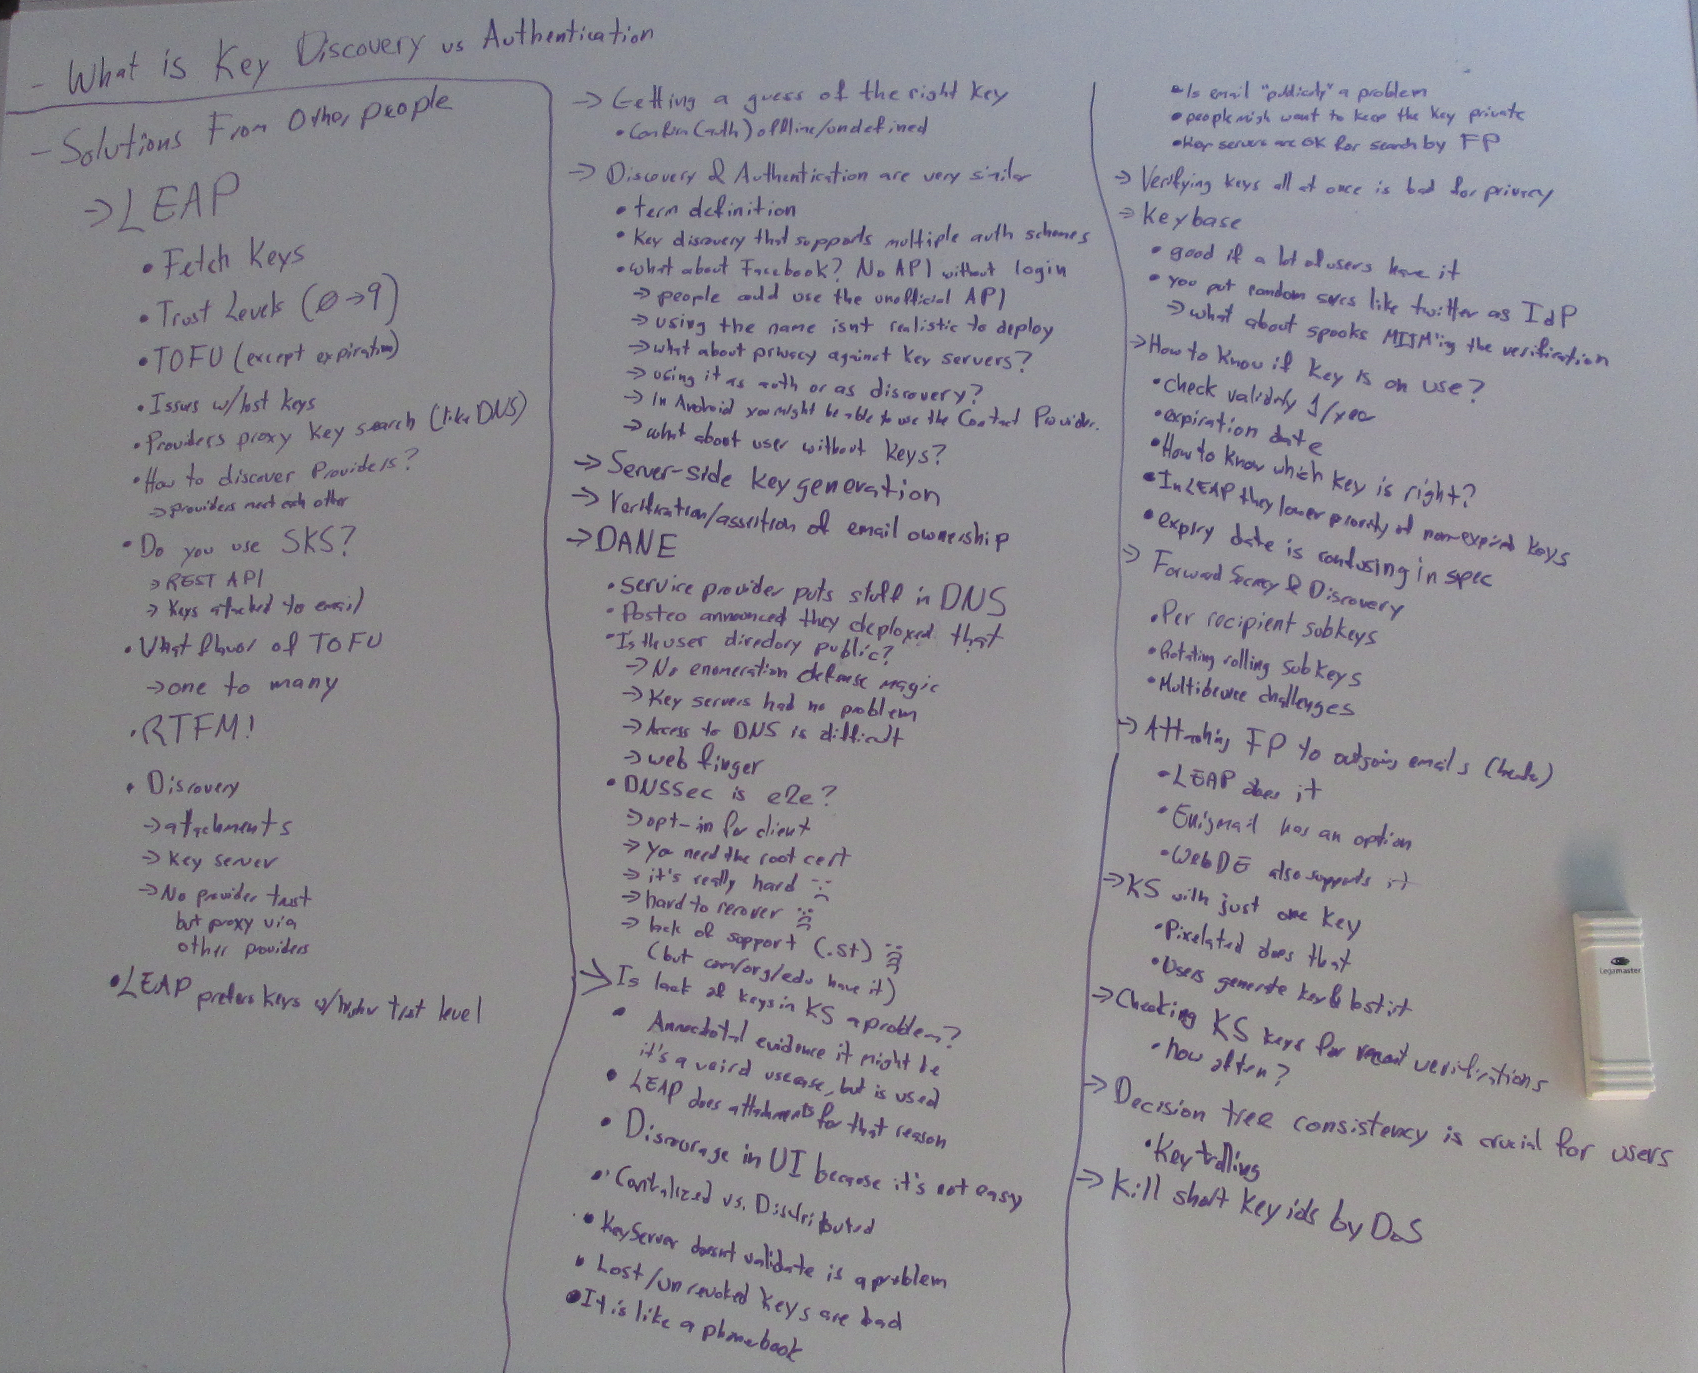 - What is Key Discovery vs Authentication
- Solutions From Other people
→ LEAP
• Fetch Keys
• Trust Levels (0→9)
• TOFU (except expiration)
• Issues w/lost keys
• Providers proxy key search (like DNS)
• How to discover Providers?
→ providers meet each other
• Do you use SKS?
→ REST API
→ Keys attached to email
• What flavor of TOFU
→ one to many
• RTFM!
• Discovery
→ attachments
→ Key server
→ No provider trust
but proxy via
other providers
• LEAP prefers keys w/higher trust level
→ Getting a guess of the right key
• Confirm (auth) offline/undefined
→ Discovery & Authentication are very similar
• term definition
• Key discovery that supports multiple auth schemes
• What about Facebook? No API without login
→ people could use the unofficial API
→ using the name isnt realistic to deploy
→ what about privacy against key servers?
→ using it as auth or as discovery?
→ In Android you might be able to use the Contact Provider.
→ what about user without keys?
→ Server-side key generation
→ Verification/assertion of email ownership
→ DANE
• Service provider puts stuff in DNS
• Posteo announced they deployed that
• Is the user directory public?
→ No enumeration defense magic
→ Key servers had no problem
→ Access to DNS is difficult
→ web finger
• DNSSec is e2e?
→ opt-in for client
→ you need the root cert
→ it's really hard
→ hard to recover
→ lack of support (.st)
(but com/org/edu have it)
→ Is lack of keys in KS a problem?
• Annecdotal evidence it might be
it's a weird usecase, but is used
• LEAP does attachments for that reason
• Discourage in UI because it's not easy
• Centralized vs. Distributed
• KeyServer doesnt validate is a problem
• Lost/unrevoked keys are bad
• It is like a phonebook
• Is email "publicity" a problem
• people migh want to keep the key private
• Key servers are OK for search by FP
→ Verifying keys all at once is bad for privacy
→ Keybase
• good if a lot of users have it
• you put random svcs like twitter as IdP
→ what about spooks MITM'ing the verification
→ How to know if key is on use?
• check validity 1/year
• expiration date
• How to know which key is right?
• In LEAP they lower priority of non-expired keys
• expiry date is confusing in spec
→ Forward Secrecy & Discovery
• Per recipient subkeys
• Rotating rolling subkeys
• Multidevice challenges
→ Attaching FP to outgoing emails (header)
• LEAP does it
• Enigmail has an option
• WebDE also supports it
→ KS with just one key
• Pixelated does that
• Users generate key & lost it
→ Checking KS keys for recent verifications
• how often?
→ Decision tree consistency is crucial for users
• Key trolling
→ Kill short key ids by DoS
Legamaster